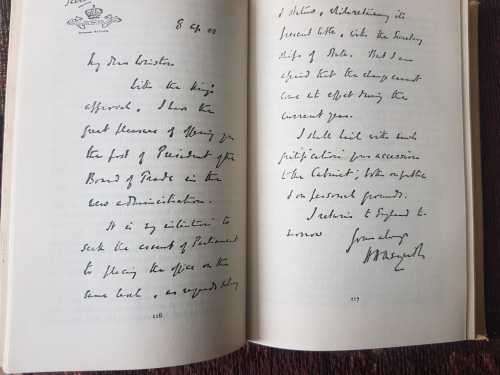 8 Ap. 08
My dear Winston
With the King's
approval, I have the
great pleasure of offering you
the post of President of the
Board of Trade in the
new administration.
It is my intention to
seek the assent of Parliament
to placing the office on the
same level, as regards salary
116
& status, while retaining its
present title, with the Secretary
ships of State. But I am
afraid that the change cannot
come at effect during the
current year.
I shall hail with much
gratification your accession
to the Cabinet, both on public
& on personal grounds.
I return to England to-
morrow
Yours always
H H Asquith
117